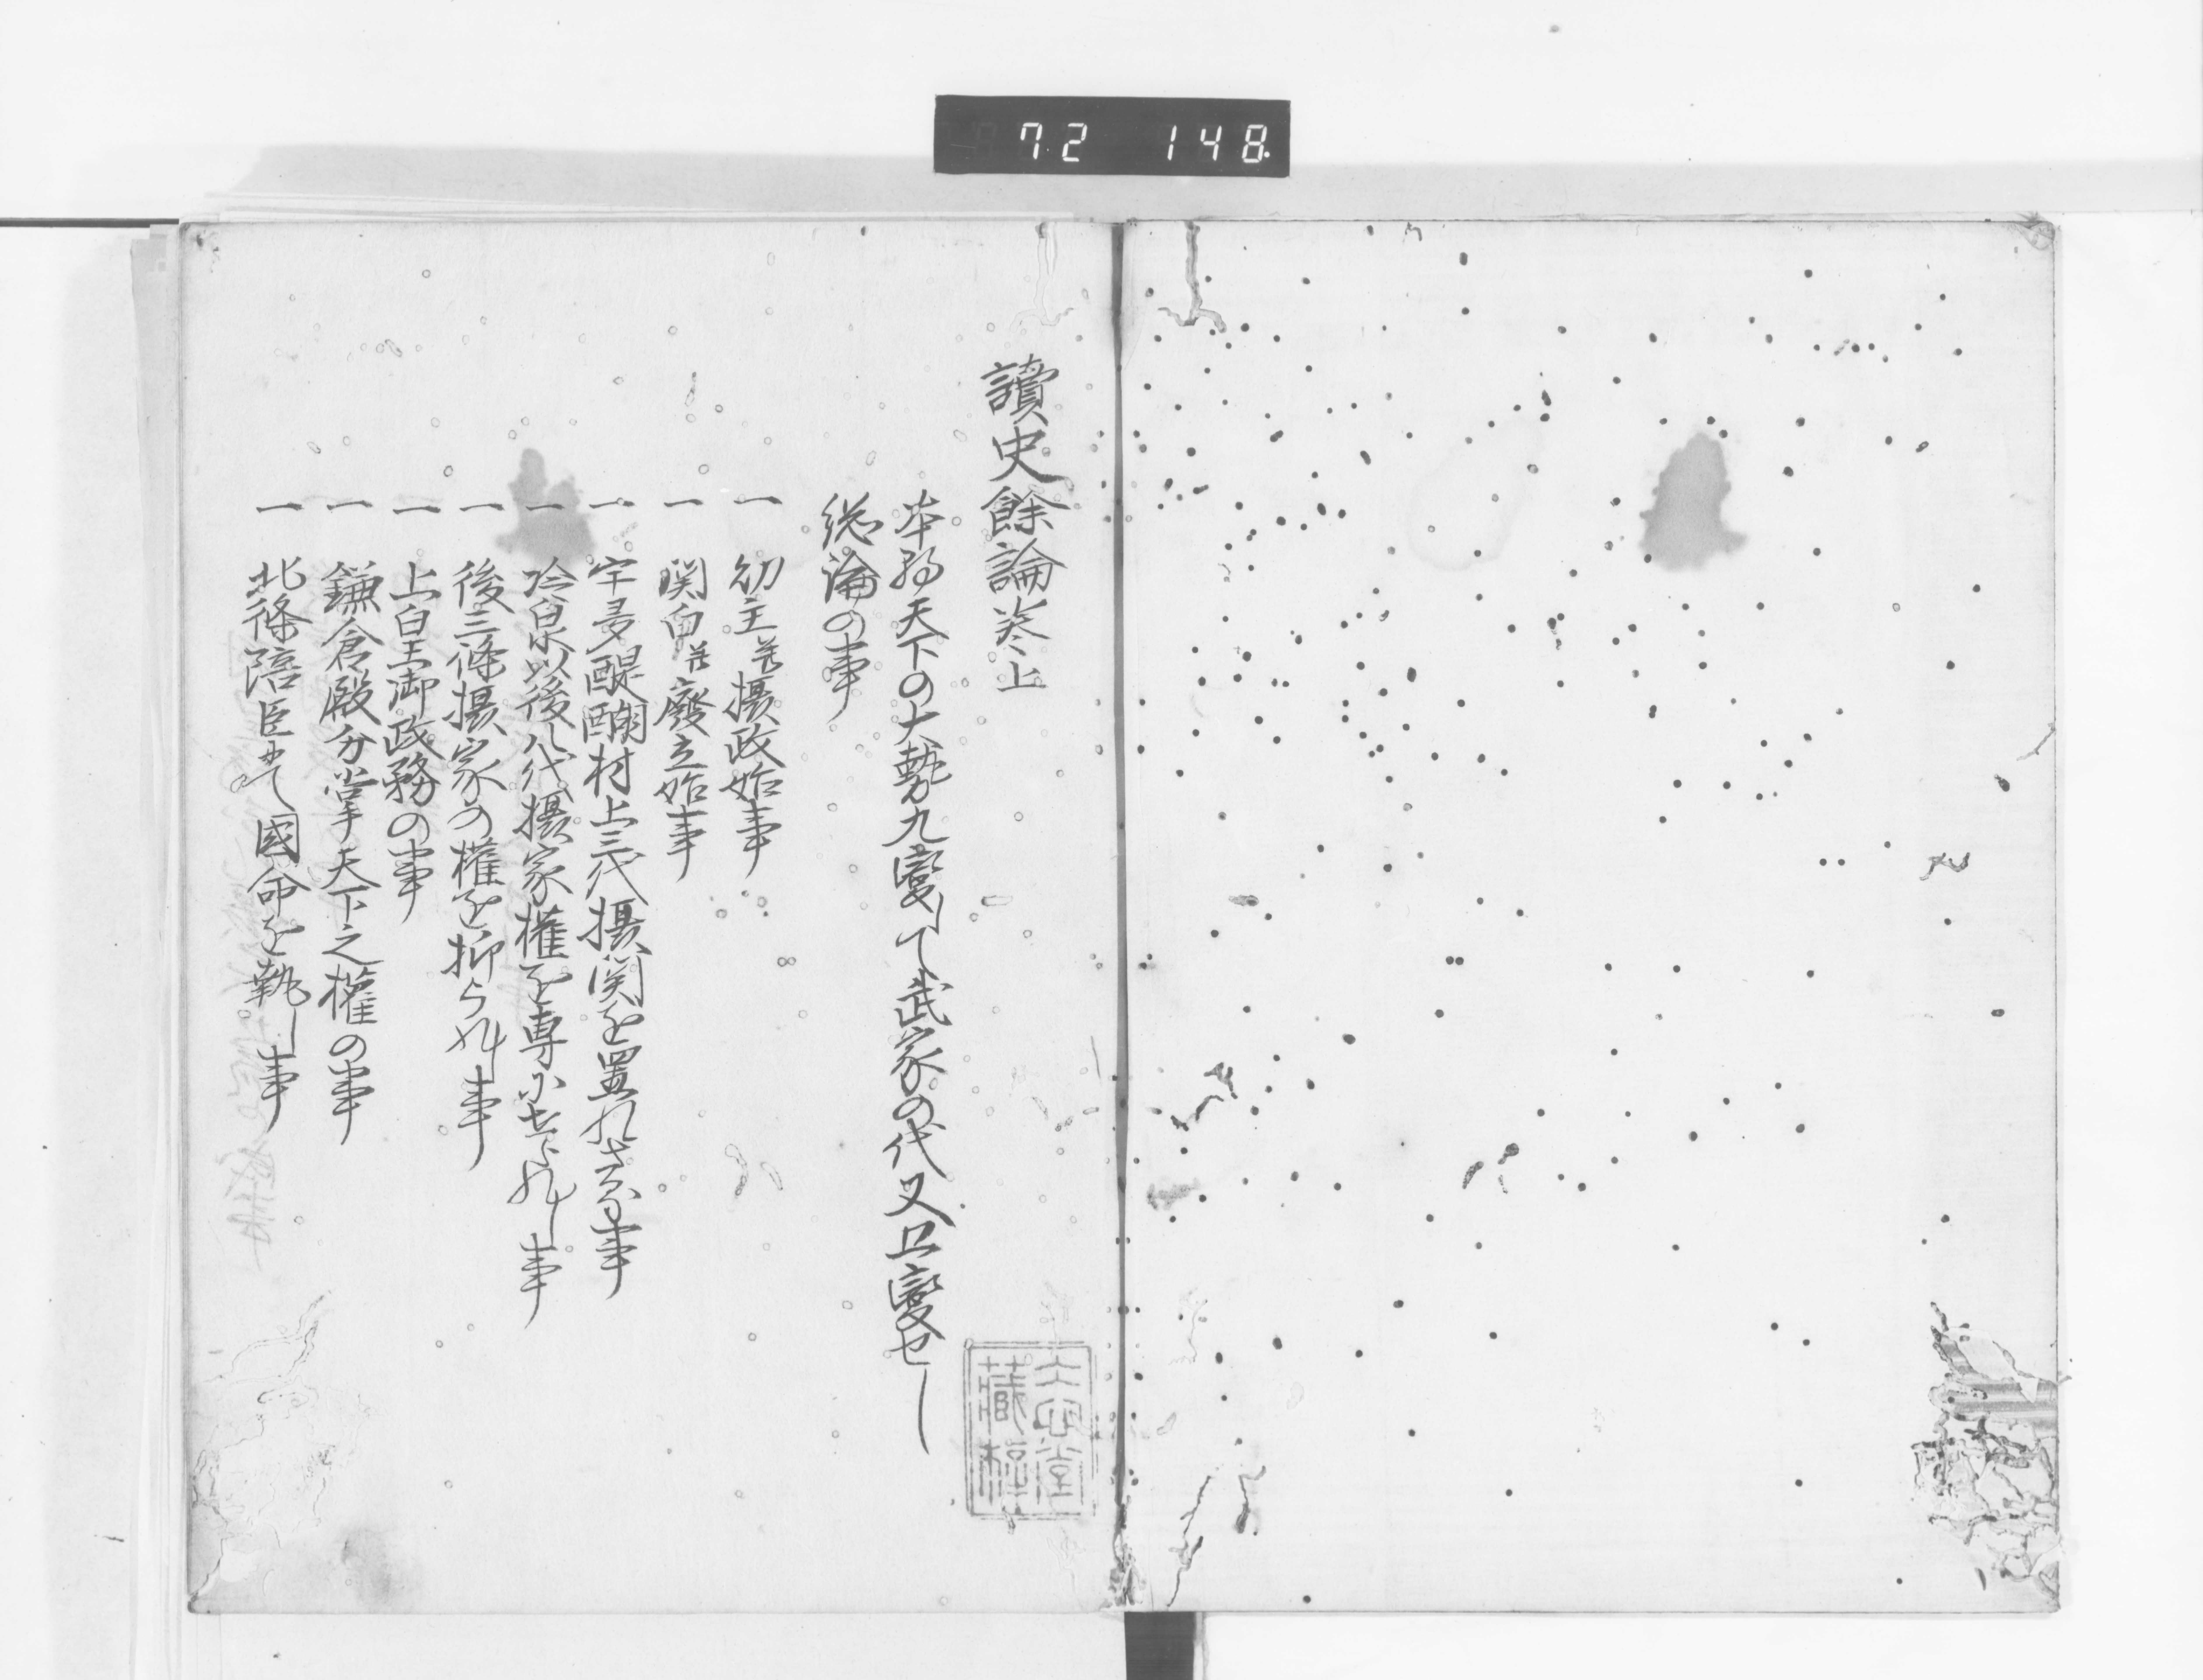 72 148
讀史餘論巻上
本朝天下の大勢九變して武家の代又五變せし
総論の事
一 幼主并攝政始事
一 関白并廢立始事
一 宇多醍醐村上三代攝関を置れさる事
一 冷泉以後八代攝家權を専にせられし事
一 後三條攝家の權を抑られし事
一 上皇御政務の事
一 鎌倉殿分掌天下之權の事
一 北條陪臣にて國命を執し事
堂
藏